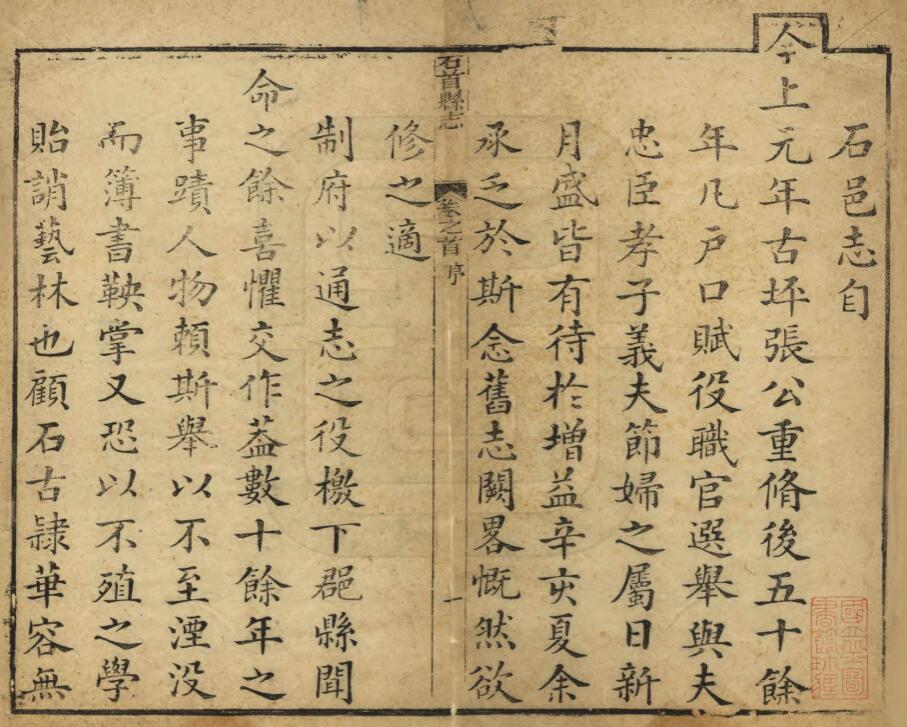 石邑志自
今上元年古坪張公重脩後五十餘
年凡戸口賦役職官選舉與夫
忠臣孝子義夫節婦之屬日新
月盛皆有待扵增益辛亥夏余
承乏於斯念舊志闕畧慨然欲
修之適
石首縣志
卷之首 序
一
制府以通志之役檄下郡縣聞
命之餘喜懼交作葢數十餘年之
事蹟人物頼斯舉以不至湮没
而簿書鞅掌又恐以不殖之學
貽誚藝林也顧石古隷華容無